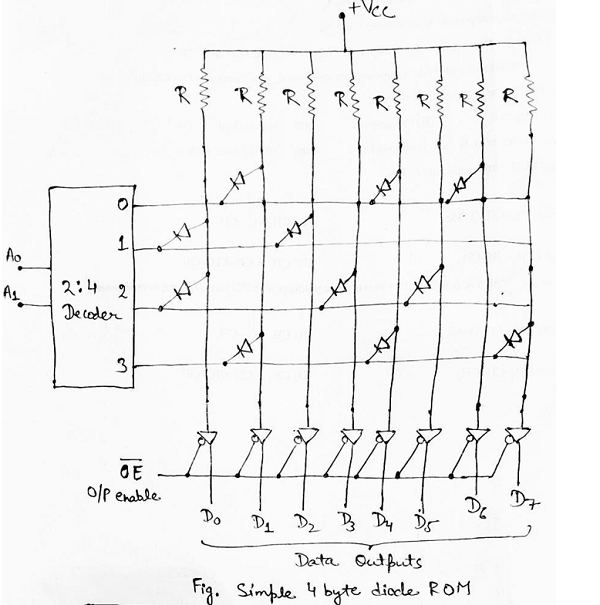 +Vcc
R R R R R R R R
0
1
2
3
A0
A1
2:4
Decoder
OE
O/P enable
D0 D1 D2 D3 D4 D5 D6 D7
Data Outputs
Fig. Simple 4 byte diode ROM